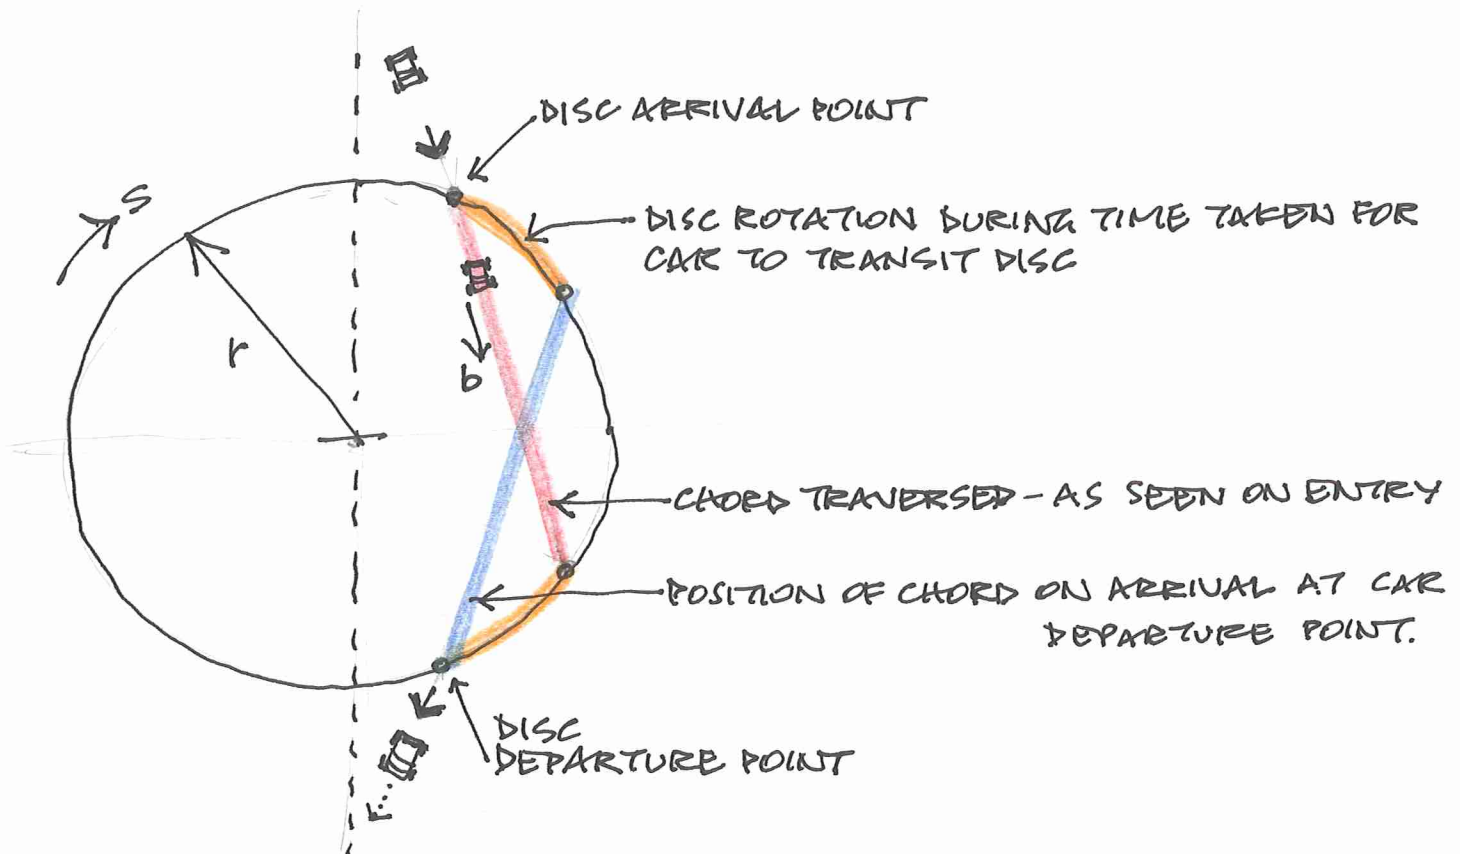 DISC ARRIVAL POINT
S
DISC ROTATION DURING TIME TAKEN FOR
CAR TO TRANSIT DISC
r
b
CHORD TRAVERSED - AS SEEN ON ENTRY
POSITION OF CHORD ON ARRIVAL AT CAR
DEPARTURE POINT.
DISC
DEPARTURE POINT